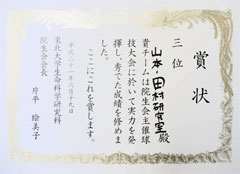 賞状
三位
山本・田村研究室殿
貴チームは院生会主催球
技大会に於いて実力を発
揮し、秀でた成績を修めま
した。
ここにこれを賞します。
平成二十一年六月十九日
東北大学生命科学研究科
院生会会長
片平 絵美子